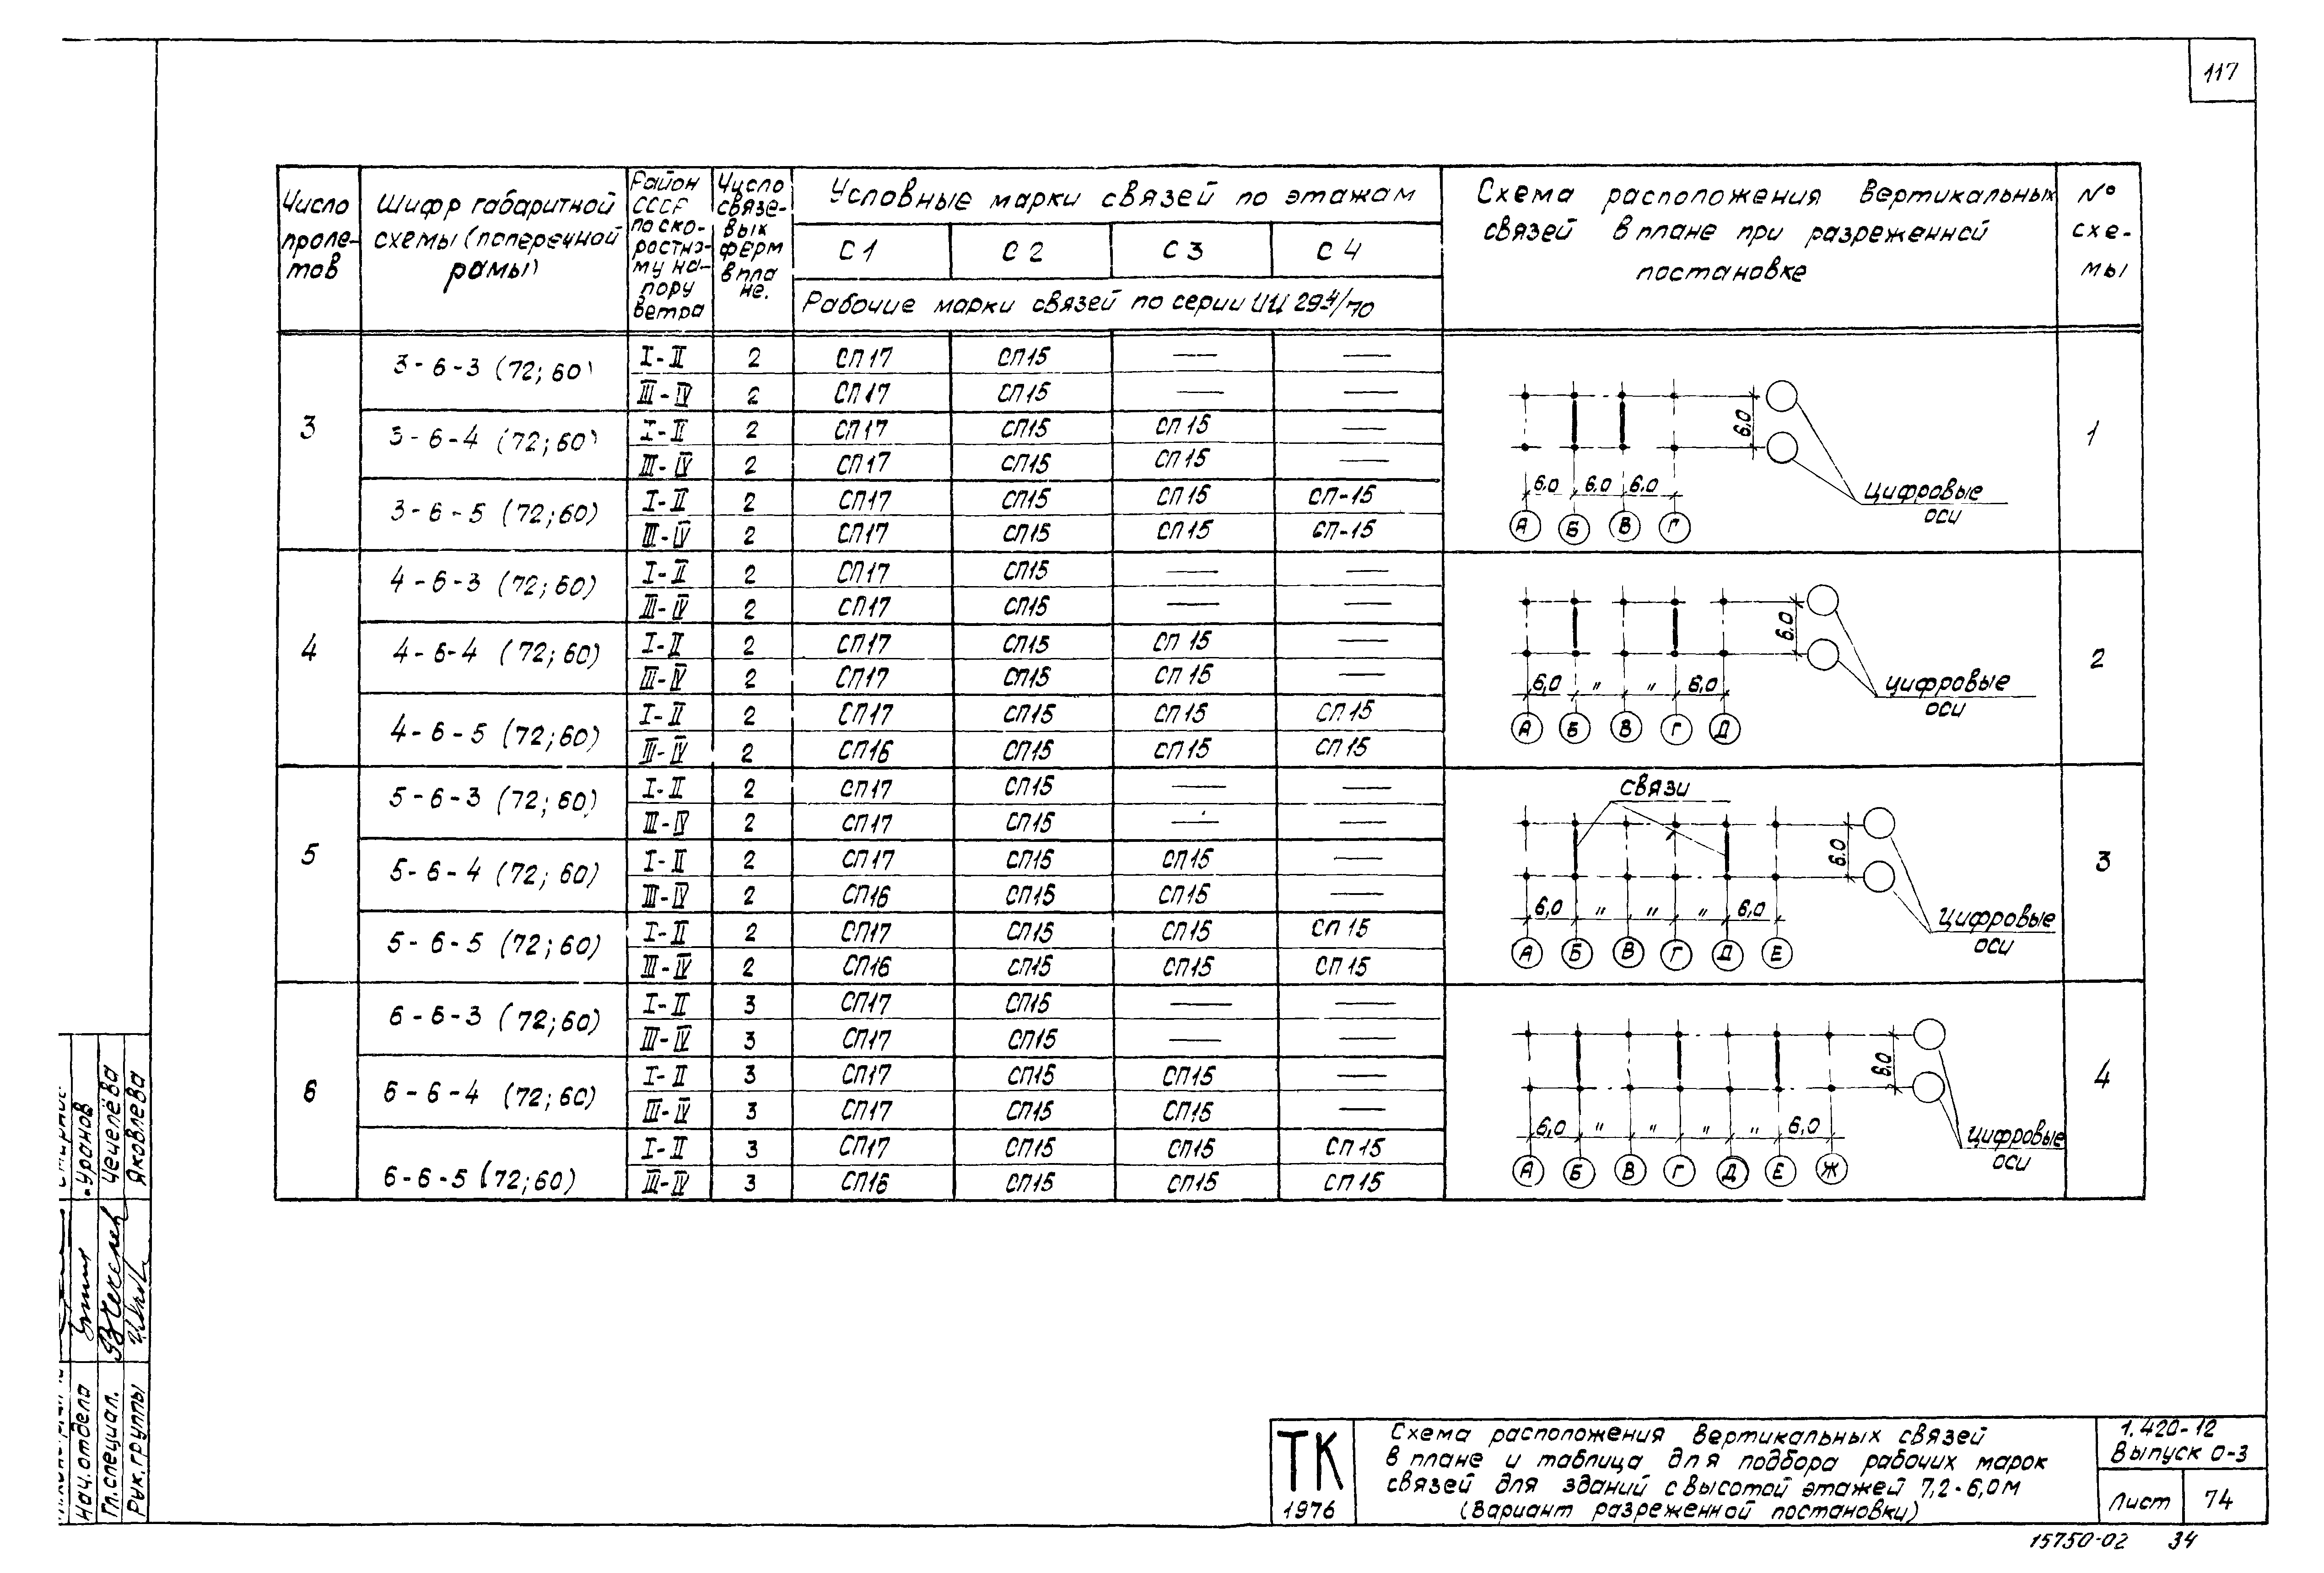 117
Число
проле-
тов
Шифр габаритной
схемы (поперечной
рамы)
Район
СССР
по ско-
ростно-
му на-
пору
ветра
Число
связе-
вых
ферм
в пла
не.
Условные марки связей по этажам
С1 С2 С3 С4
Рабочие марки связей по серии ИИ 29-4/70
Схема расположения вертикальных
связей в плане при разреженной
постановке
№
схе-
мы
3
3-6-3 (72;60)
I-II 2 СП17 СП15 — —
III-IV 2 СП17 СП15 — —
3-6-4 (72;60)
I-II 2 СП17 СП15 СП15 —
III-IV 2 СП17 СП15 СП15 —
3-6-5 (72;60)
I-II 2 СП17 СП15 СП15 СП-15
III-IV 2 СП17 СП15 СП15 СП-15
6,0
6,0 6,0 6,0
А Б В Г
цифровые
оси
1
4
4-6-3 (72;60)
I-II 2 СП17 СП15 — —
III-IV 2 СП17 СП15 — —
4-6-4 (72;60)
I-II 2 СП17 СП15 СП15 —
III-IV 2 СП17 СП15 СП15 —
4-6-5 (72;60)
I-II 2 СП17 СП15 СП15 СП15
III-IV 2 СП16 СП15 СП15 СП15
6,0
6,0 " " 6,0
А Б В Г Д
цифровые
оси
2
5
5-6-3 (72;60)
I-II 2 СП17 СП15 — —
III-IV 2 СП17 СП15 — —
5-6-4 (72;60)
I-II 2 СП17 СП15 СП15 —
III-IV 2 СП16 СП15 СП15 —
5-6-5 (72;60)
I-II 2 СП17 СП15 СП15 СП15
III-IV 2 СП16 СП15 СП15 СП15
связи
6,0
6,0 " " " 6,0
А Б В Г Д Е
Цифровые
оси
3
6
6-6-3 (72;60)
I-II 3 СП17 СП15 — —
III-IV 3 СП17 СП15 — —
6-6-4 (72;60)
I-II 3 СП17 СП15 СП15 —
III-IV 3 СП17 СП15 СП15 —
6-6-5 (72;60)
I-II 3 СП17 СП15 СП15 СП15
III-IV 3 СП16 СП15 СП15 СП15
6,0
6,0 " " " " 6,0
А Б В Г Д Е Ж
Цифровые
оси
4
Нач. отдела
Уранов
Гл. специал.
Чечелёва
Рук. группы
Яковлева
ТК
1976
Схема расположения вертикальных связей
в плане и таблица для подбора рабочих марок
связей для зданий с высотой этажей 7,2-6,0м
(Вариант разреженной постановки)
1.420-12
Выпуск 0-3
Лист 74
15750-02 34